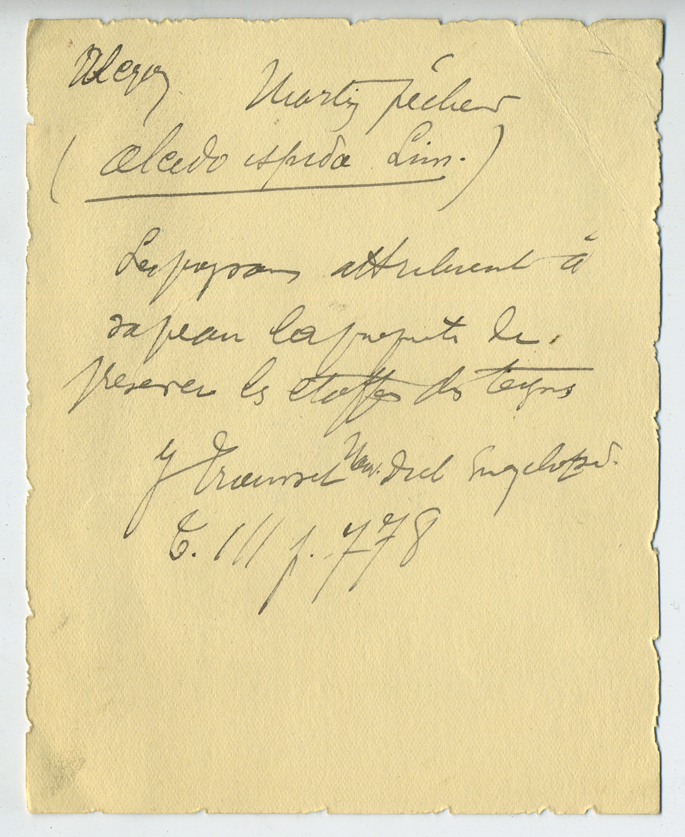 Martin pêcheur
(alcedo ispida Linn.)
Les paysans attribuent à
sa peau la propriété de
préserver les étoffes des teignes
J Trousset Nouv. Dict Encyclopéd.
T. III p. 778